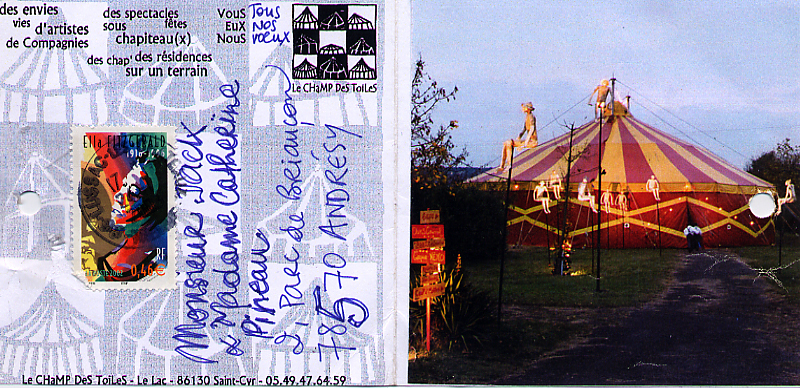 des envies
vies d'artistes
de Compagnies
des spectacles
sous fêtes
chapiteau(x)
des chap' des résidences
sur un terrain
VouS
EuX
NouS
Tous
Nos
vœux
Le CHaMP DeS ToiLeS
Ella FITZGERALD
1917-1996
RF
0,46€
Monsieur Jack
& Madame Catherine
Pineau
2, Parc de Briançon
78570 ANDRÉSY
Le CHaMP DeS ToiLeS - Le Lac - 86130 Saint-Cyr - 05.49.47.64.59